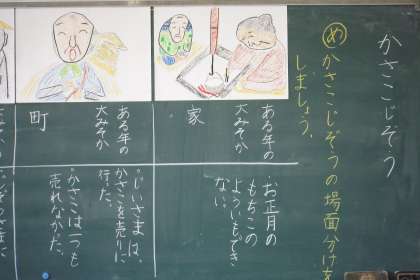 かさこじぞう
めかさこじぞうの場面分けを
しましょう。
ある年の
大みそか
家
・お正月の
もちこの
よういもでき
ない。
ある年の
大みそか
町
・じいさまは、
かさこを売りに
行った。
・かさこは一つも
売れなかった。